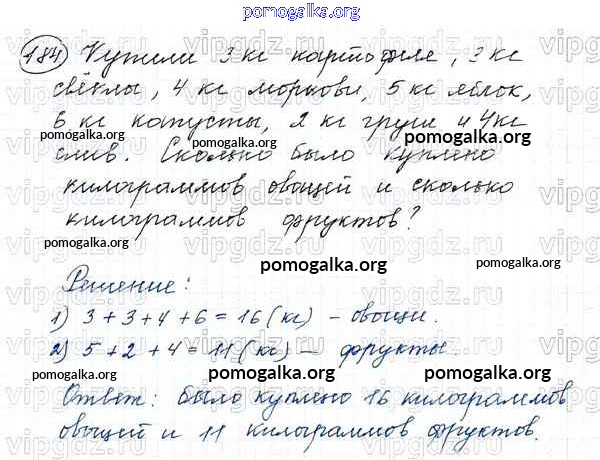 pomogalka.org
184) Купили 3 кг картофеля, 3 кг
свёклы, 4 кг моркови, 5 кг яблок,
6 кг капусты, 2 кг груш и 4 кг
слив. Сколько было куплено
килограммов овощей и сколько
килограммов фруктов?
pomogalka.org
pomogalka.org
pomogalka.org
Решение:
1) 3+3+4+6=16 (кг) – овощи.
2) 5+2+4=11 (кг) – фрукты.
pomogalka.org
pomogalka.org
pomogalka.org
Ответ: было куплено 16 килограммов
овощей и 11 килограммов фруктов.